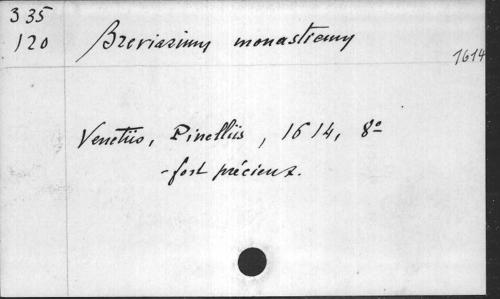 335
120
Breviarium monasticum
1614
Venetiis, Pinelliis, 1614, 8º
- fort précieux.